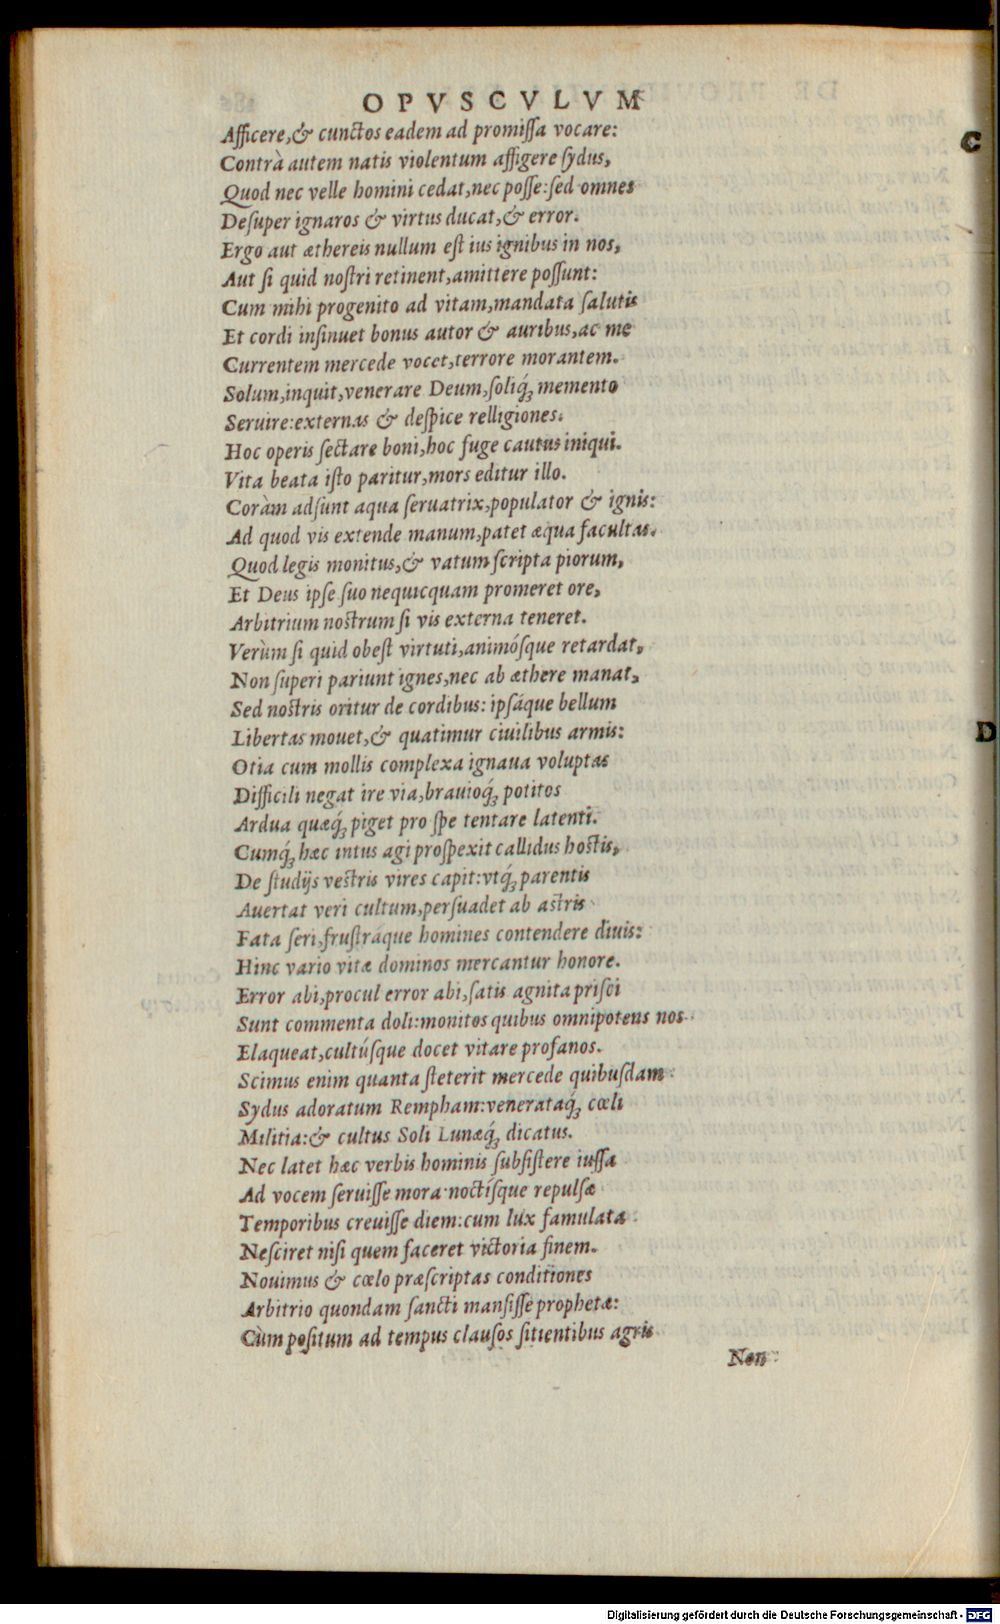 OPVSCVLVM
Afficere,& cunctos eadem ad promissa vocare:
Contrà autem natis violentum affigere sydus,
Quod nec velle homini cedat,nec posse:sed omnes
Desuper ignaros & virtus ducat,& error.
Ergo aut æthereis nullum est ius ignibus in nos,
Aut si quid nostri retinent,amittere possunt:
Cum mihi progenito ad vitam,mandata salutis
Et cordi insinuet bonus autor & auribus,ac me
Currentem mercede vocet,terrore morantem.
Solum,inquit,venerare Deum,soliq́; memento
Seruire:externas & despice relligiones.
Hoc operis sectare boni,hoc fuge cautus iniqui.
Vita beata isto paritur,mors editur illo.
Coràm adsunt aqua seruatrix,populator & ignis:
Ad quod vis extende manum,patet æqua facultas.
Quod legis monitus,& vatum scripta piorum,
Et Deus ipse suo nequicquam promeret ore,
Arbitrium nostrum si vis externa teneret.
Verùm si quid obest virtuti,animósque retardat,
Non superi pariunt ignes,nec ab æthere manat,
Sed nostris oritur de cordibus: ipsáque bellum
Libertas mouet,& quatimur ciuilibus armis:
Otia cum mollis complexa ignaua voluptas
Difficili negat ire via,brauioq́; potitos
Ardua quæq́; piget pro spe tentare latenti.
Cumq́; hæc intus agi prospexit callidus hostis,
De studijs vestris vires capit:vtq́; parentis
Auertat veri cultum,persuadet ab astris
Fata seri,frustráque homines contendere diuis:
Hinc vario vitæ dominos mercantur honore.
Error abi,procul error abi,satis agnita prisci
Sunt commenta doli:monitos quibus omnipotens nos
Elaqueat,cultúsque docet vitare profanos.
Scimus enim quanta steterit mercede quibusdam
Sydus adoratum Rempham:venerataq́; cœli
Militia:& cultus Soli Lunæq́; dicatus.
Nec latet hæc verbis hominis subsistere iussa
Ad vocem seruisse mora:noctísque repulsæ
Temporibus creuisse diem:cum lux famulata
Nesciret nisi quem faceret victoria finem.
Nouimus & cœlo præscriptas conditiones
Arbitrio quondam sancti mansisse prophetæ:
Cùm positum ad tempus clausos sitientibus agris
Non
C
D
Digitalisierung gefördert durch die Deutsche Forschungsgemeinschaft - DFG